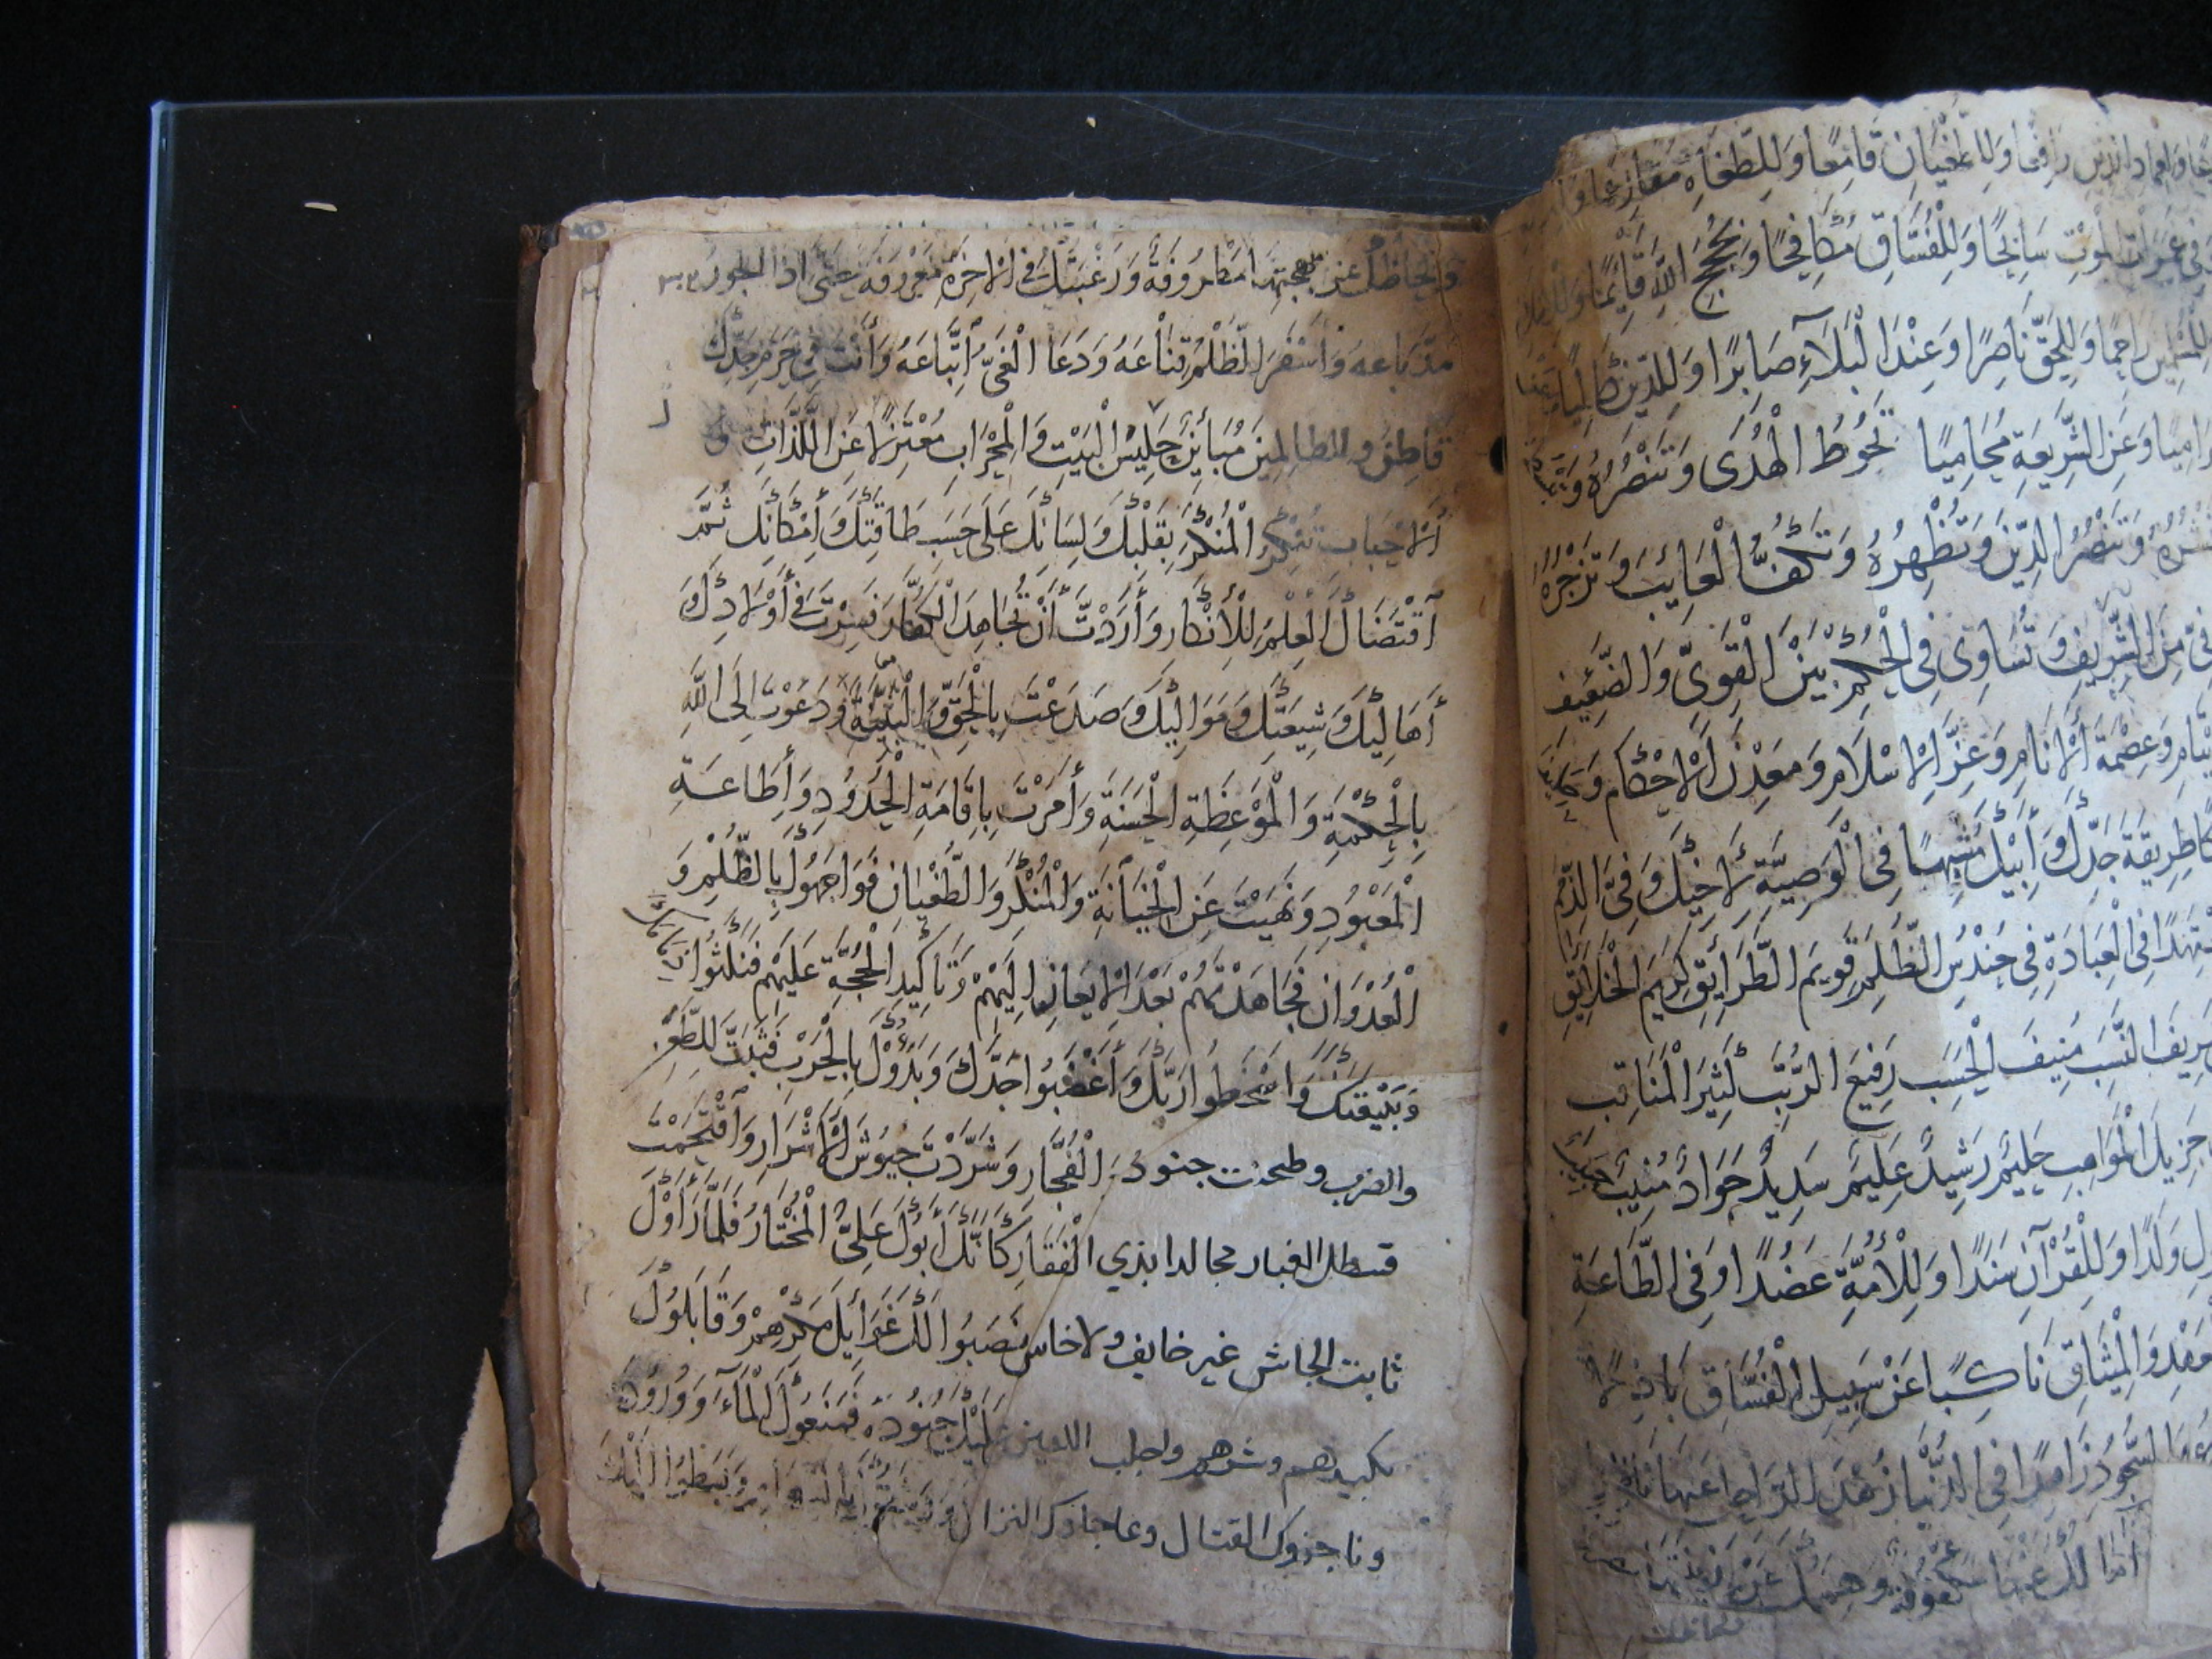 وَللِطُّغْيَانِ قَامِعًا وَلِلطُّغَاةِ مُقَارِعًا
فِي غَمَرَاتِ الْمَوْتِ سَابِحًا وَلِلْفُسَّاقِ مُكَافِحًا وَبِحُجَجِ اللَّهِ قَائِمًا
رَاحِمًا وَلِلْحَقِّ نَاصِرًا وَعِنْدَ الْبَلَاءِ صَابِرًا وَلِلدِّينِ كَالِيًا
رَامِيًا وَعَنِ الشَّرِيعَةِ مُحَامِيًا تَحُوطُ الْهُدَى وَتَنْصُرُهُ وَ
وَتَنْصُرُ الدِّينَ وَتُظْهِرُهُ وَتَكُفُّ الْعَابِثَ وَتَزْجُرُهُ
مِنَ الشَّرِيفِ وَتُسَاوِي فِي الْحُكْمِ بَيْنَ الْقَوِيِّ وَالضَّعِيفِ
وَعِصْمَةَ الْأَنَامِ وَعِزَّ الْإِسْلَامِ وَمَعْدِنَ الْأَحْكَامِ وَ
طَرِيقَةَ جَدِّكَ وَأَبِيكَ مُشْبِهًا فِي الْوَصِيَّةِ لِأَخِيكَ وَفِيَّ الذِّمَمِ
فِي الْعِبَادَةِ فِي حِنْدِسِ الظُّلَمِ قَوِيمَ الطَّرَائِقِ كَرِيمَ الْخَلَائِقِ
النَّسَبِ مُنِيفَ الْحَسَبِ رَفِيعَ الرُّتَبِ كَثِيرَ الْمَنَاقِبِ
جَزِيلَ الْمَوَاهِبِ حَلِيمٌ رَشِيدٌ عَلِيمٌ سَدِيدٌ جَوَادٌ مُنِيبٌ
وَلَدًا وَلِلْقُرْآنِ سَنَدًا وَلِلْأُمَّةِ عَضُدًا وَفِي الطَّاعَةِ
وَالْمِيثَاقِ نَاكِبًا عَنْ سَبِيلِ الْفُسَّاقِ بَاذِلًا
السُّجُودِ زَاهِدًا فِي الدُّنْيَا زُهْدَ الرَّاحِلِ عَنْهَا
عَنْهَا مَكْفُوفَةٌ وَهِمَّتُكَ عَنْ زِينَتِهَا
وَأَلْحَاظُكَ عَنْ بَهْجَتِهَا مَطْرُوفَةٌ وَرَغْبَتُكَ فِي الْآخِرَةِ مَعْرُوفَةٌ حَتَّى إِذَا الْجَوْرُ
مَدَّ بَاعَهُ وَأَسْفَرَ الظُّلْمُ قِنَاعَهُ وَدَعَا الْغَيُّ أَتْبَاعَهُ وَأَنْتَ فِي حَرَمِ جَدِّكَ
قَاطِنٌ وَلِلظَّالِمِينَ مُبَايِنٌ جَلِيسُ الْبَيْتِ وَالْمِحْرَابِ مُعْتَزِلٌ عَنِ اللَّذَّاتِ وَ
الْأَحْبَابِ تُنْكِرُ الْمُنْكَرَ بِقَلْبِكَ وَلِسَانِكَ عَلَى حَسَبِ طَاقَتِكَ وَإِمْكَانِكَ ثُمَّ
اقْتَضَاكَ الْعِلْمُ لِلْإِنْكَارِ وَأَرَدْتَ أَنْ تُجَاهِدَ الْكُفَّارَ فَسِرْتَ فِي أَوْلَادِكَ
أَهَالِيكَ وَشِيعَتِكَ وَمَوَالِيكَ وَصَدَعْتَ بِالْحَقِّ وَالْبَيِّنَةِ وَدَعَوْتَ إِلَى اللَّهِ
بِالْحِكْمَةِ وَالْمَوْعِظَةِ الْحَسَنَةِ وَأَمَرْتَ بِإِقَامَةِ الْحُدُودِ وَإِطَاعَةِ
الْمَعْبُودِ وَنَهَيْتَ عَنِ الْخِيَانَةِ وَالْمُنْكَرِ وَالطُّغْيَانِ فَوَاجَهُوكَ بِالظُّلْمِ وَ
الْعُدْوَانِ فَجَاهَدْتَهُمْ بَعْدَ الْإِيعَازِ إِلَيْهِمْ وَتَأْكِيدِ الْحُجَّةِ عَلَيْهِمْ فَنَكَثُوا
وَبَيْعَتَكَ وَأَسْخَطُوا رَبَّكَ وَأَغْضَبُوا جَدَّكَ وَبَدَؤُكَ بِالْحَرْبِ فَثَبَتَّ لِلطَّعْنِ
والضرب وطحنت جنود الْفُجَّارِ وَشَرَّدْتَ جُيُوشَ الْأَشْرَارِ وَاقْتَحَمْتَ
قسطل الغبار مجالدا بذي الْفَقَارِ كَأَنَّكَ أَبُوكَ عَلِيٌّ الْمُخْتَارُ فَلَمَّا رَأَوْكَ
ثابت الجاش غير خايف ولا خاش نَصَبُوا لَكَ غَوَائِلَ مَكْرِهِمْ وَقَابَلُوكَ
بكيدهم وشرهم واجلب اللعين عَلَيْكَ جُنُودَهُ فَمَنَعُوكَ الْمَاءَ وَوُرُودَهُ
وناجزوك القتال وعاجلوك النزال